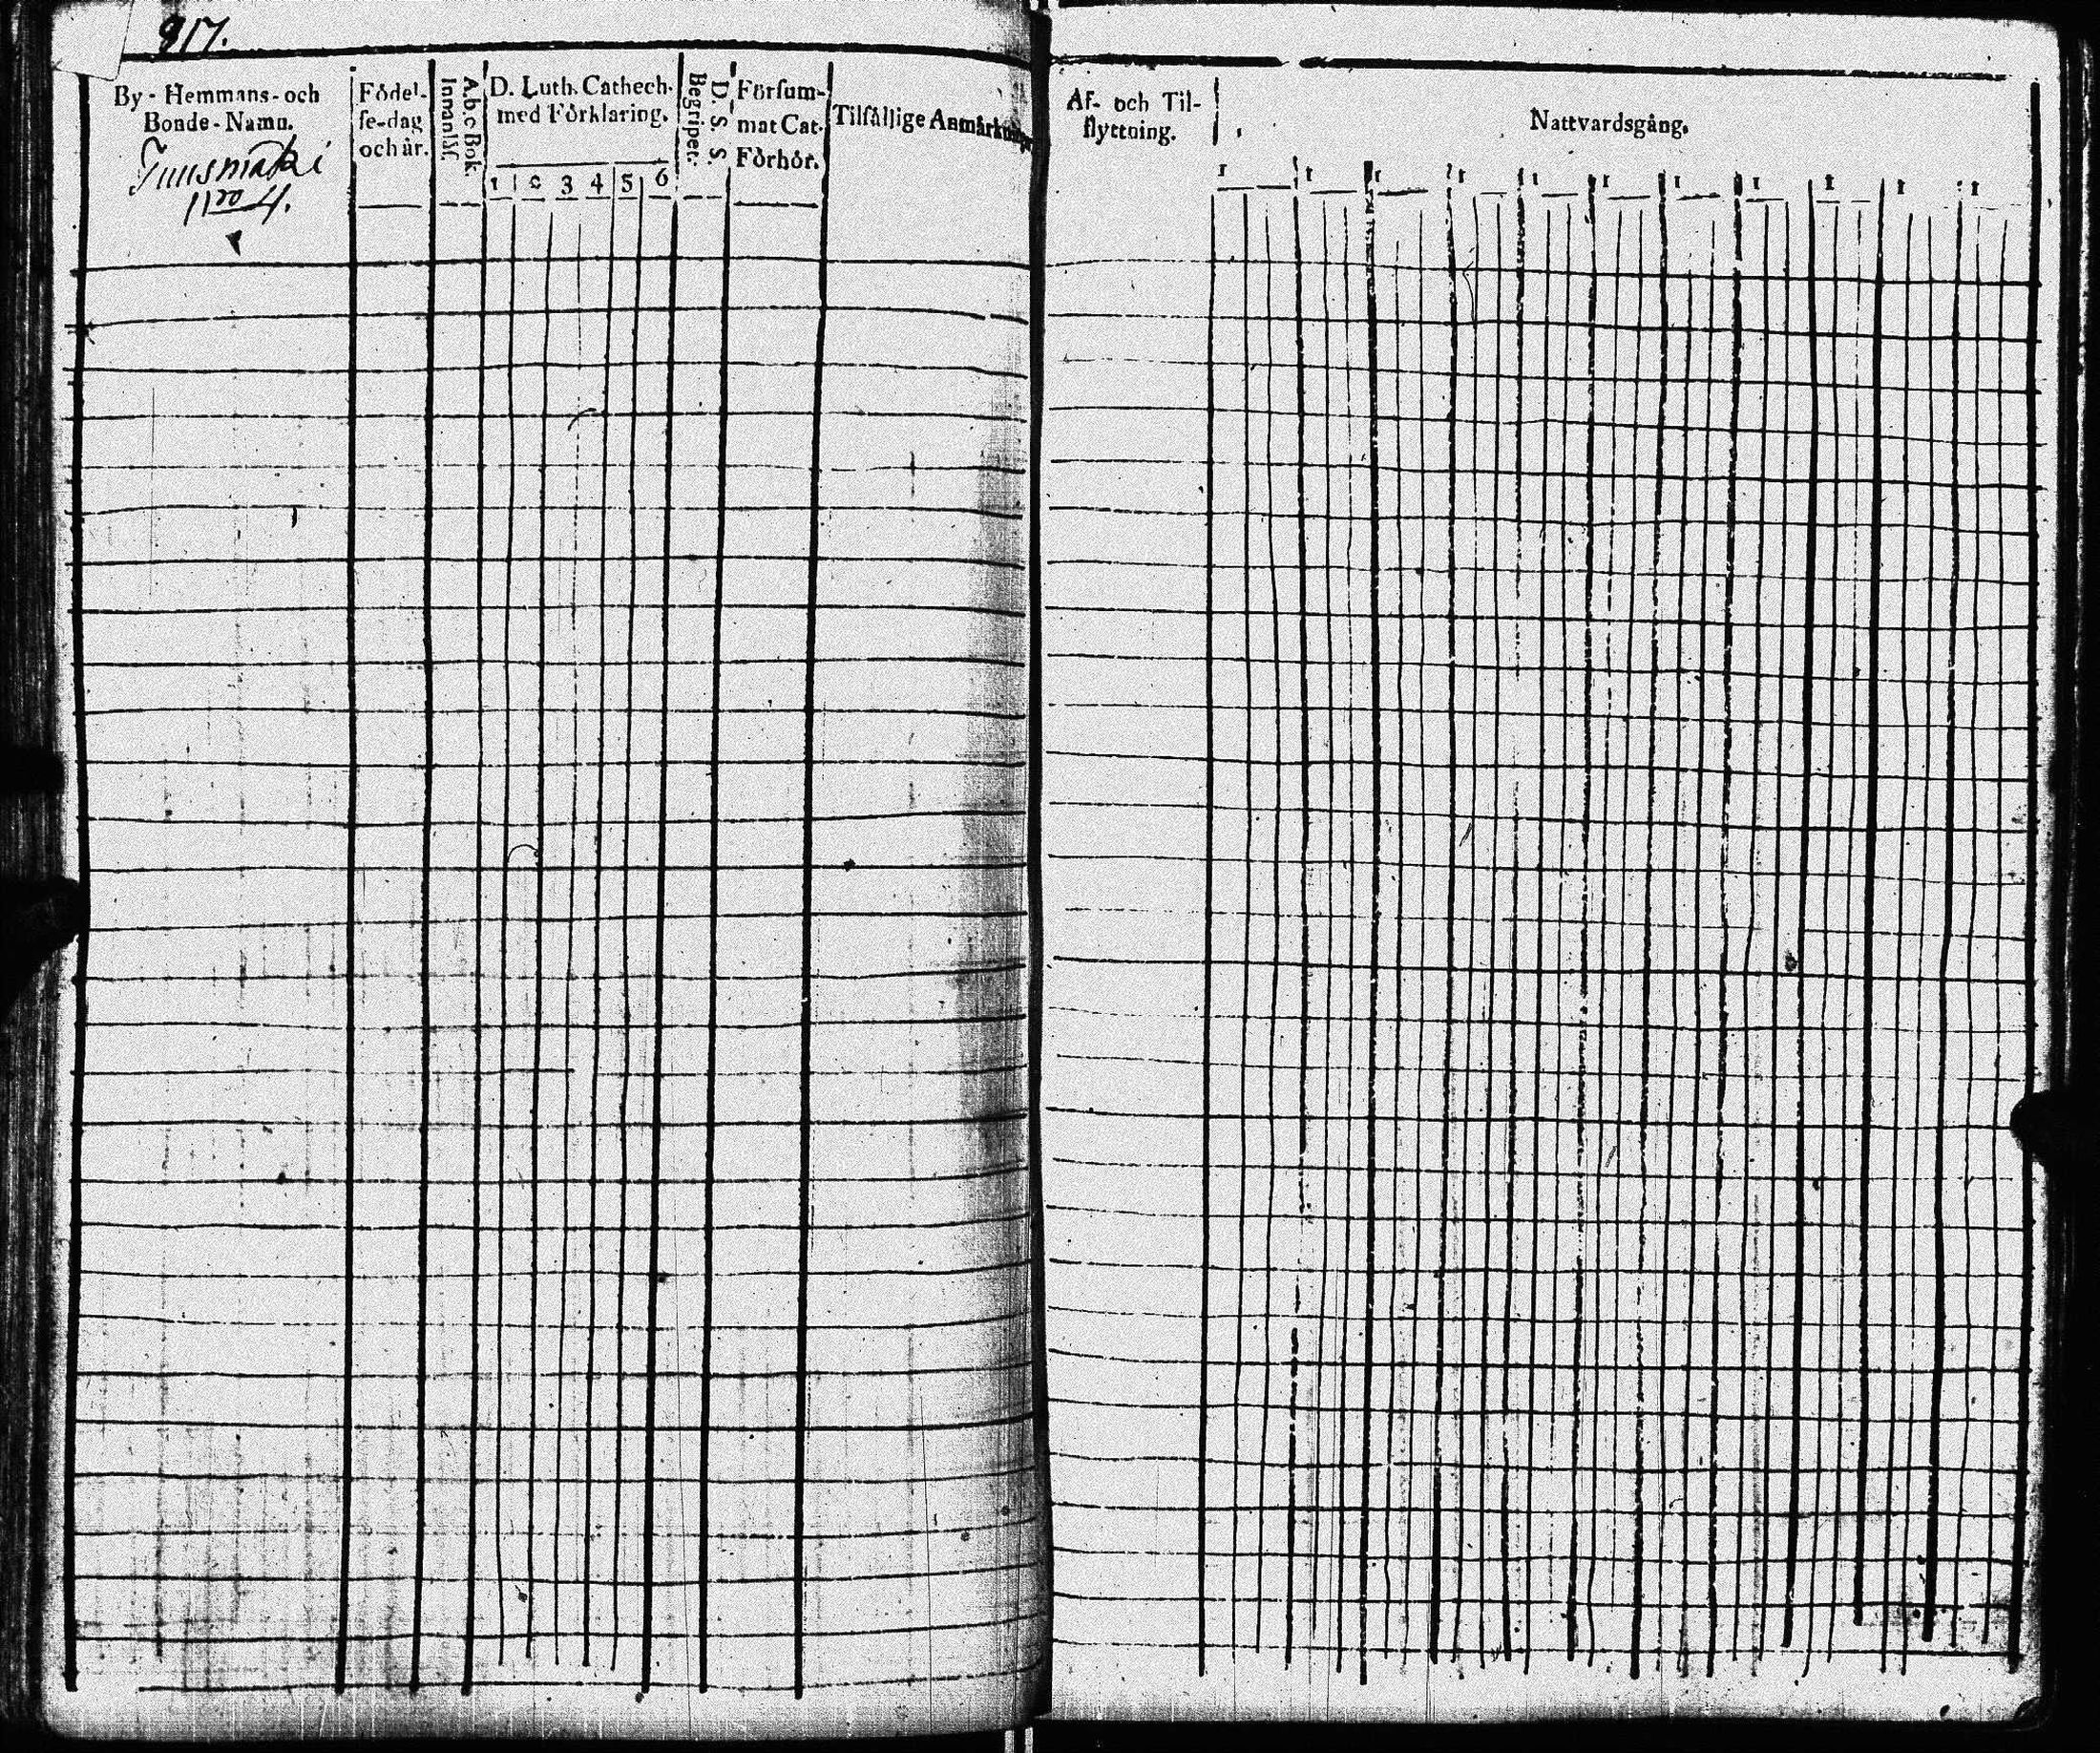 817.
By - Hemmans - och
Bonde - Namn.
N:ro 4.
Födel-
se-dag
och år.
A.b.c Bok.
Innanläs.
D. Luth. Cathech.
med Förklaring.
1 2 3 4 5 6
D. S. S.
Begriper.
Försum-
mat Cat.
Förhör.
Tilfällige Anmärkning
Af- och Til-
flyttning.
Nattvardsgång.
1 1 1 1 1 1 1 1 1 1 1